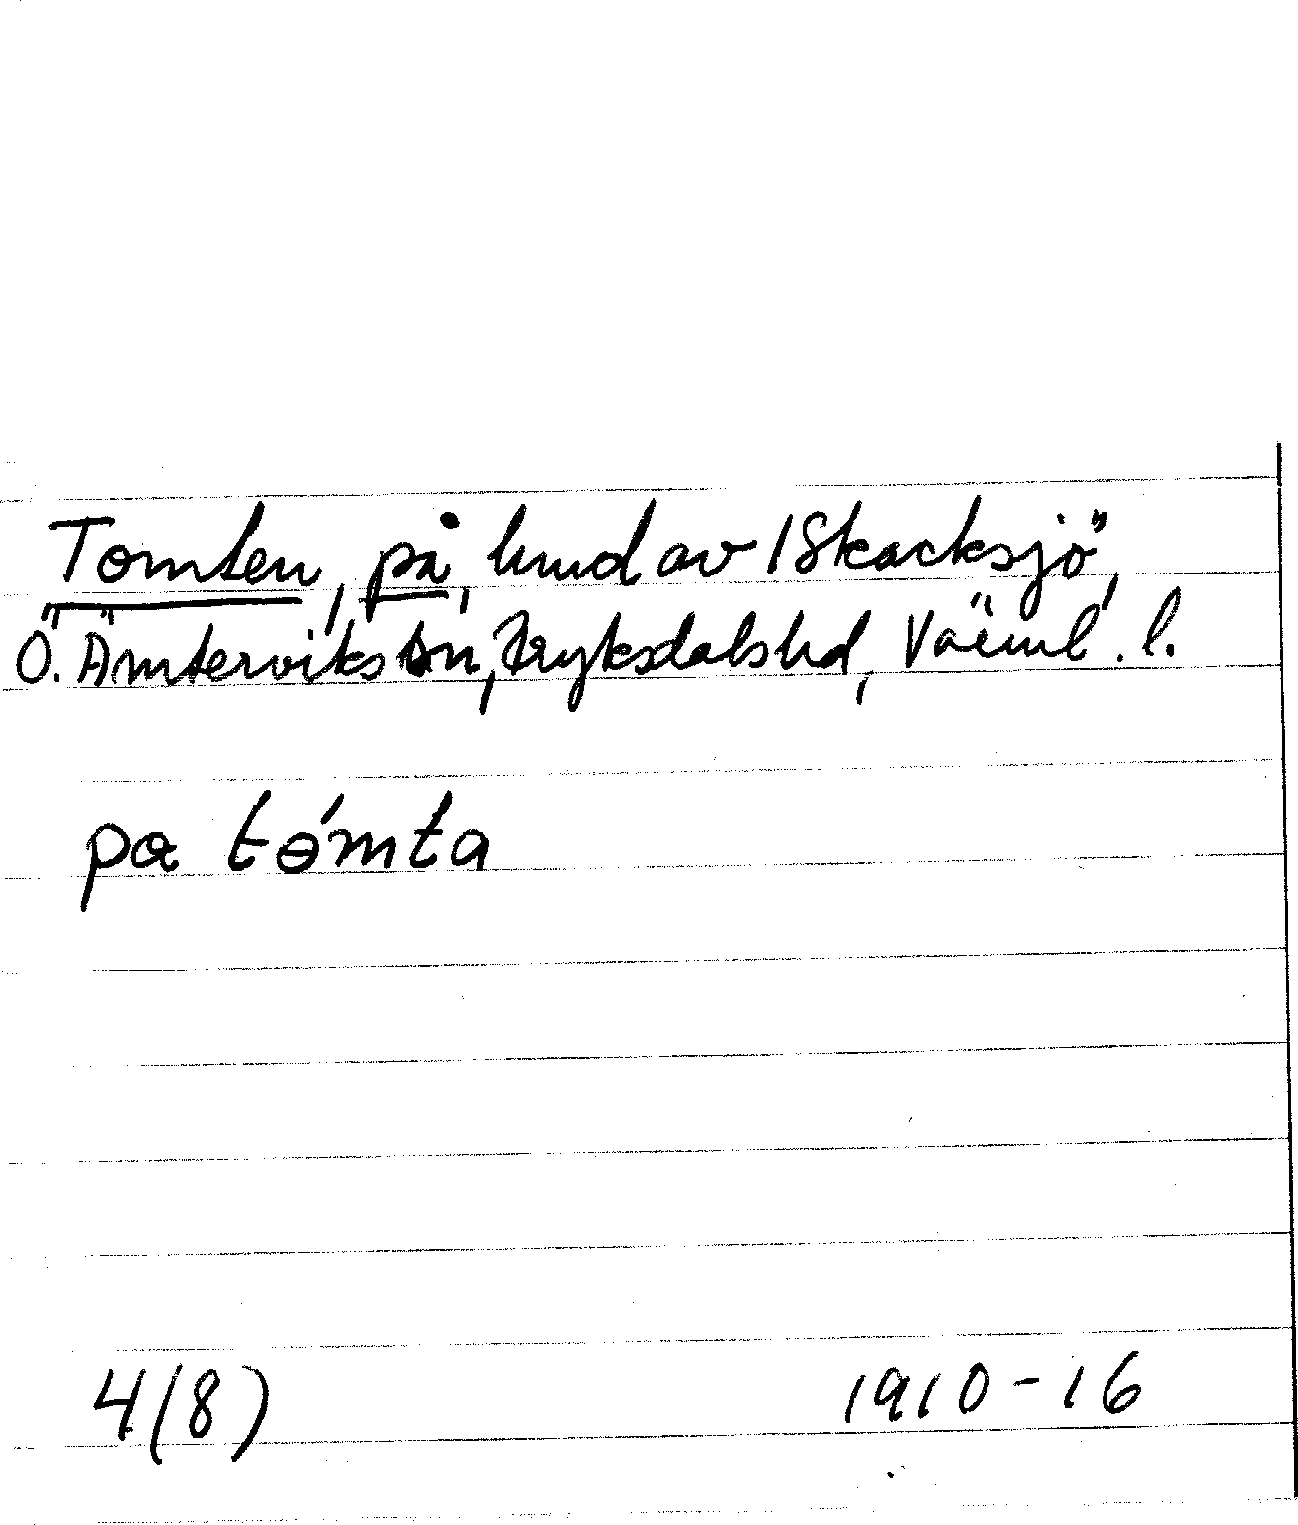 Tomten, på, hmd av 1 Skacksjö,
Ö. Ämterviks sn, Fryksdals hd, Värml. l.
pa tómta
4(8) 1910-16